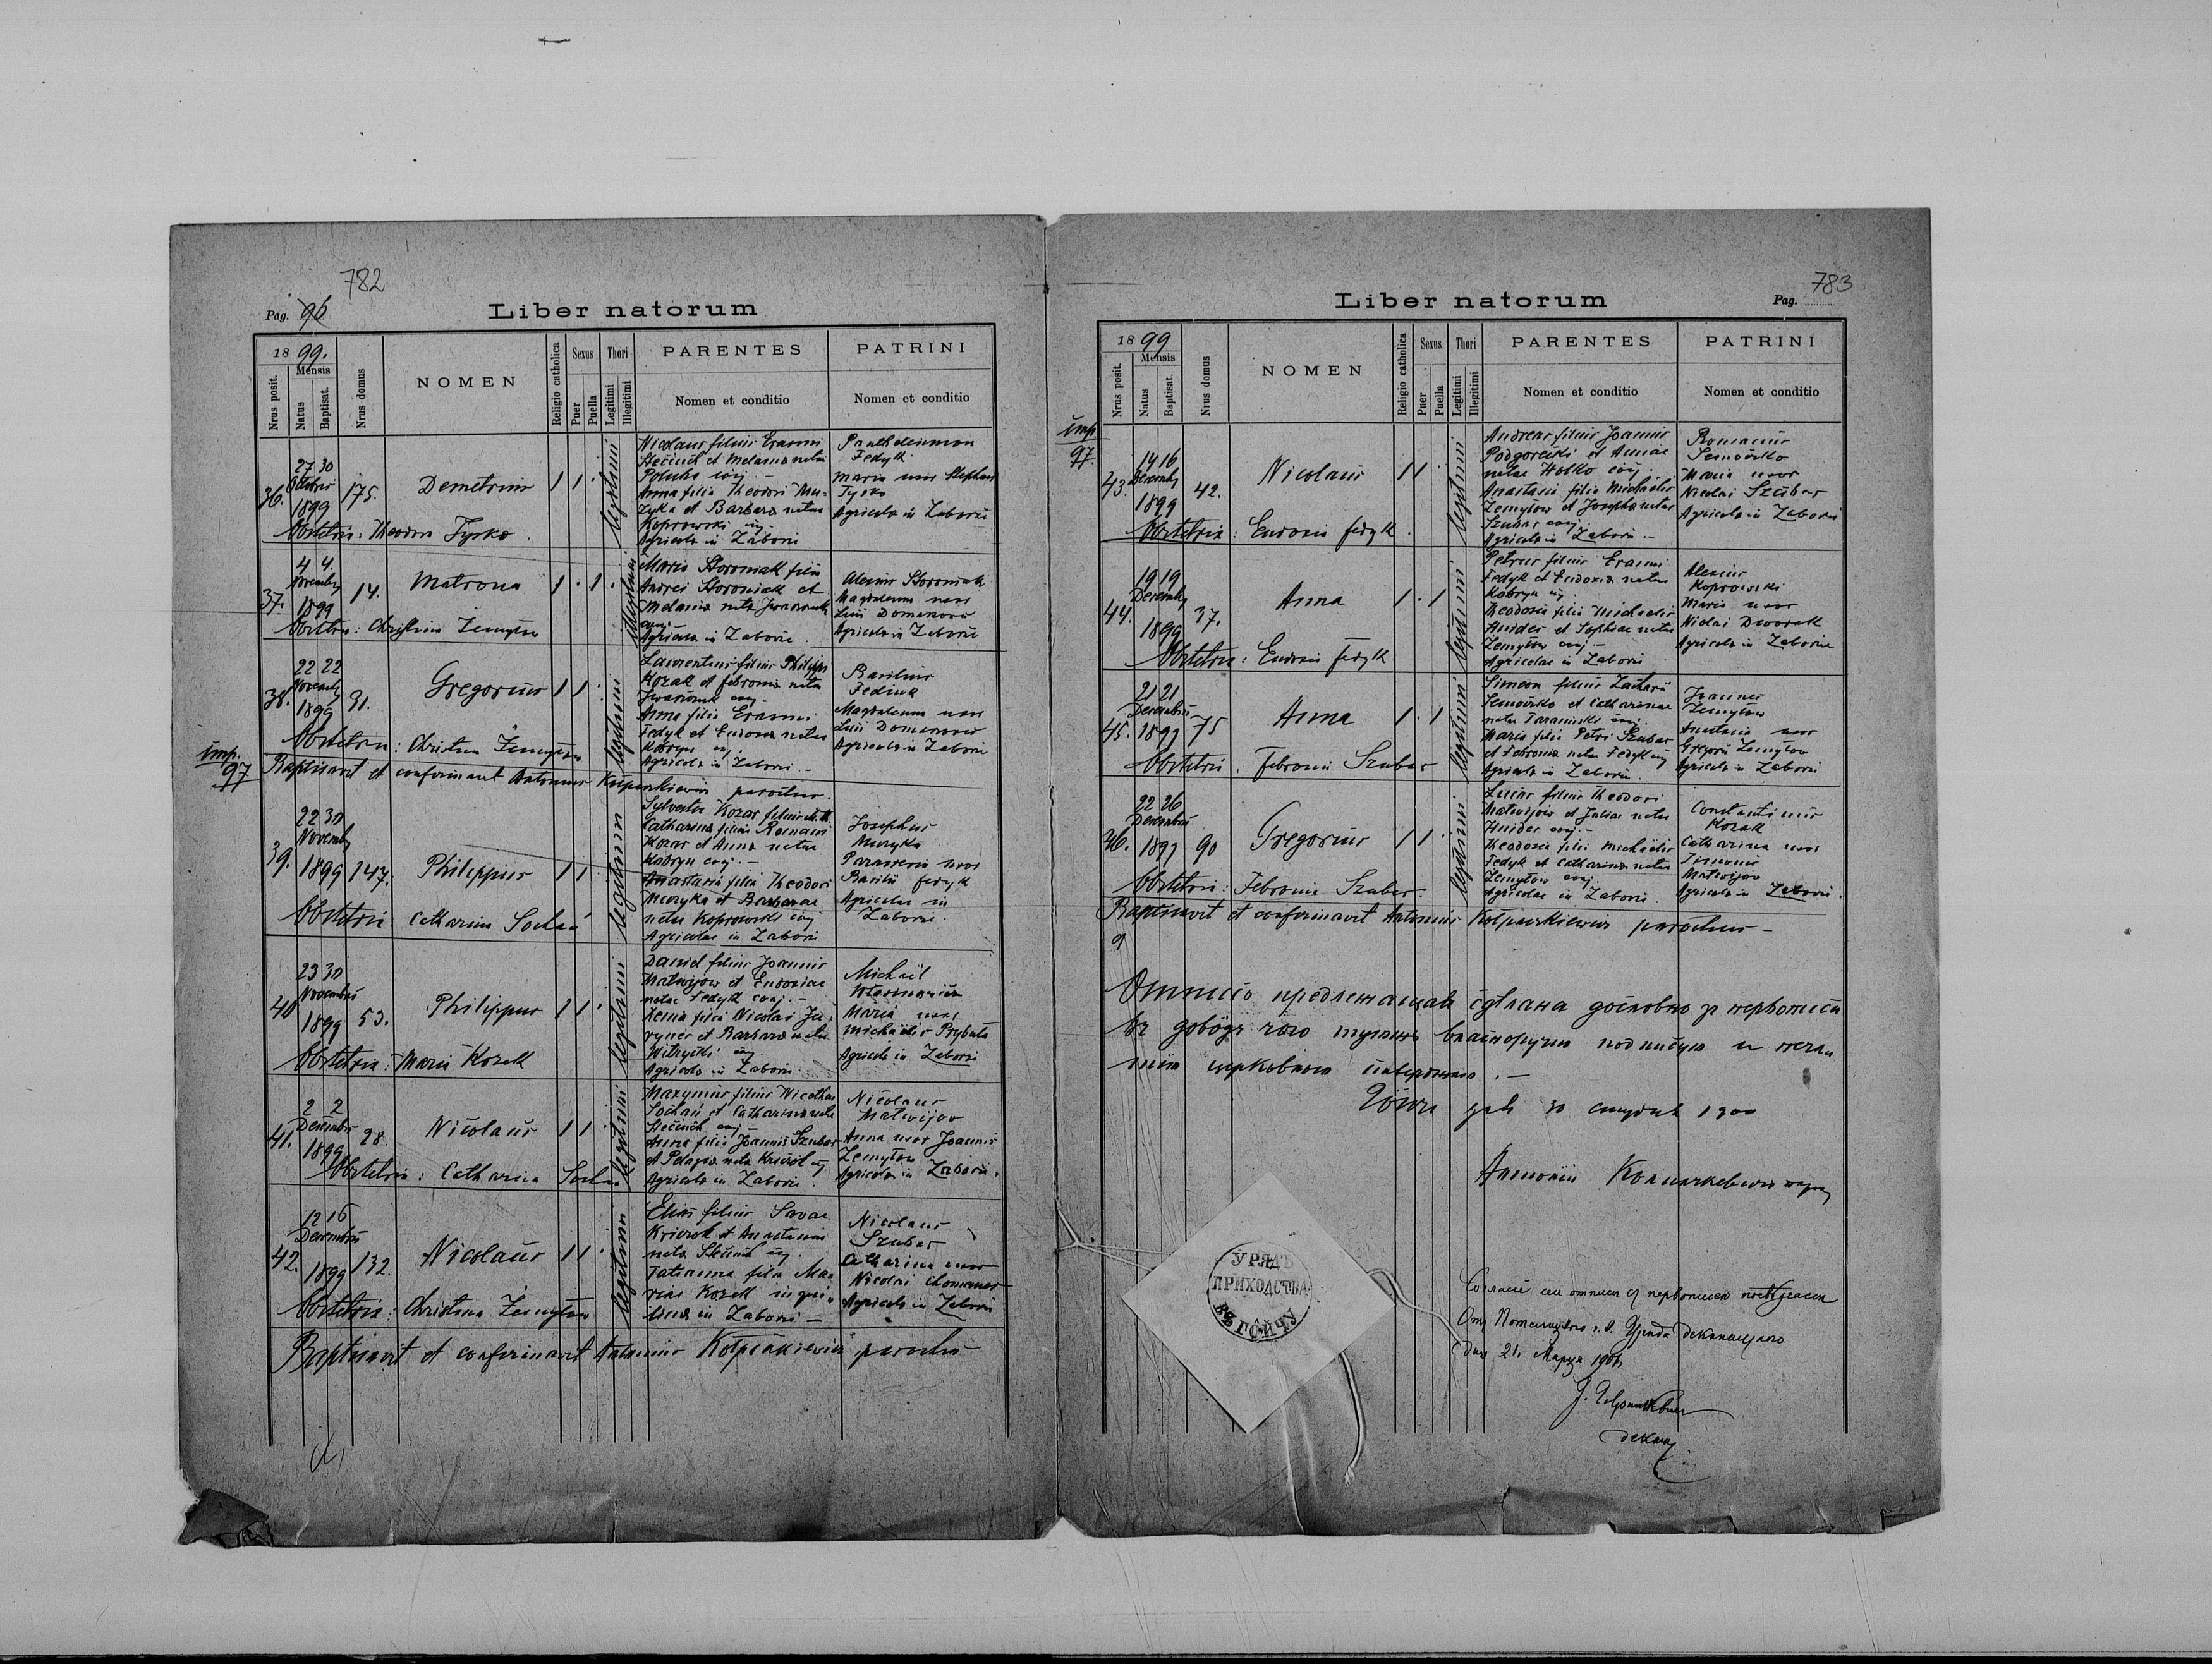 782
Pag. 96
Liber natorum
1899.
Nrus posit.
Mensis
Natus
Baptisat.
Nrus domus
NOMEN
Religio catholica
Sexus
Puer
Puella
Thori
Legitimi
Illegitimi
PARENTES
Nomen et conditio
PATRINI
Nomen et conditio
36.
27 30
Octobris
1899
175.
Demetrius
1 1
legitimi
Nicolaus filius Erasmi
Stečiuch et Melania nata
conj. —
Anna filia Theodori Mu-
zyka et Barbara natae
Koprowski conj.
Agricola in Zaborii
Panthaleimon
Fedyk
Maria uxor Stephani
Tysko
Agricola in Zaborii
Obstetrix: Theodora Tysko.
37.
4 4.
Novembris
1899
14.
Matrona
1 . 1
illegitimi
Maria Storoniak filia
Andrei Storoniak et
Melania nata
conj.
Agricola in Zaborie.
Alexius Storoniak
Magdalena uxor
Agricola in Zaborie
Obstetrix: Christina Zemytow
38.
22 22
Novembris
1899
31.
Gregorius
1 1
legitimi
Laurentius filius Philippi
Kozak et Febronia nata
conj.
Anna filia Erasmi
Fedyk et Eudoxia natae
Kobryn conj.
Agricola in Zaborii. —
Basilius
Fediuk
Magdalena uxor
Agricola in Zaborii
Obstetrix: Christina Zemytow
imp.
97
Baptisavit et confirmavit Antonius Kolpaczkiewicz parochus.
39.
22 30
Novembris
1899
147.
Philippus
1 1
legitimi
Sylvester Kozar filius
Catharina filia Romani
Kozar et Anna natae
Kobryn conj. —
Anastasia filia Theodori
Muzyka et Barbarae
natae Koprowski conj
Agricolae in Zaborii
Josephus
Muzyka
Parascevia uxor
Basilii Fedyk
Agricolae in
Zaborii.
Obstetrix Catharina Sochań
40
23 30
Novembris
1899
53.
Philippus
1 1
legitimi
Daniel filius Joannis
Matwijow et Eudoxiae
natae Fedyk conj. —
Xenia filia Nicolai
et Barbara nata
Witrycki conj
Agricola in Zaborii
Michaël
Maria uxor
Michaëlis Prybuła
Agricola in Zaborii
Obstetrix: Maria Kozak
41.
2 2
Decembris
1899
28.
Nicolaus
1 1
legitimi
Maxymus filius Nicethae
Sochań et Catharina nata
Stečiuch conj —
Anna filia Joannis Szubar
et Pelagia nata conj
Agricola in Zaborii.
Nicolaus
Matwijow
Anna uxor Joannis
Zemytow
Agricola in Zaborii.
Obstetrix: Catharina Sochań
42.
12 16
Decembris
1899
132.
Nicolaus
1 1
legitimi
Elias filius Savae
et Anastasiae
nata Stečiuch conj.
Tatianna filia Ma-
riae Kozak inqui-
lina in Zaborii —
Nicolaus
Szubar
Catharina uxor
Nicolai
Agricola in Zaborii
Obstetrix: Christina Zemytow
Baptisavit et confirmavit Antonius Kolpaczkiewicz parochus
783
Liber natorum
Pag.
1899
Nrus posit.
Mensis
Natus
Baptisat.
Nrus domus
NOMEN
Religio catholica
Sexus
Puer
Puella
Thori
Legitimi
Illegitimi
PARENTES
Nomen et conditio
PATRINI
Nomen et conditio
imp
97.
43.
14 16
Decembris
1899
42.
Nicolaus
1 1
legitimi
Andreas filius Joannis
Podgorecki et Annae
natae Hołko conj.
Anastasia filia Michaëlis
Zemytow et Josepha natae
Szubar conj.
Agricola in Zaborii. —
Romanus
Semowko
Maria uxor
Nicolai Szubar
Agricola in Zaborii
Obstetrix: Eudoxia Fedyk.
44.
19 19
Decembris
1899
37.
Anna
1 . 1
legitimi
Petrus filius Erasmi
Fedyk et Eudoxia natae
Kobryn conj.
Theodosia filia Michaëlis
Hnides et Sophiae natae
Zemytow conj —
Agricolae in Zaborii
Alexius
Koprowski
Maria uxor
Nicolai Dworak
Agricola in Zaborie
Obstetrix: Eudoxia Fedyk
45.
21 21
Decembris
1899
75
Anna
1 . 1
legitimi
Simeon filius Zachariä
Semowko et Catharinae
natae Taraminski conj.
Maria filia Petri Szubar
et Febronia nata Fedyk conj
Agricola in Zaborii.
Joannes
Zemytow
Anastasia uxor
Gregorii Zemytow
Agricola in Zaborii
Obstetrix. Febronia Szubar
46.
22 26
Decembris
1899
90
Gregorius
1 1
legitimi
Lucas filius Theodori
Matwijow et Juliae natae
Hnides conj. —
Theodosia filia Michaëlis
Fedyk et Catharina natae
Zemytow conj.
Agricolae in Zaborii.
Constantinus
Kozak
Catharina uxor
Matwijow
Agricola in Zaborii.
Obstetrix: Febronia Szubar
Baptisavit et confirmavit Antonius Kolpaczkiewicz parochus —
Отпись предлежащая сдѣлана дословно з первописи
въ доводъ чого тутъже власноручно подписую и печа-
тію церковною ствержаю. —
дня 30 студня 1900
Антоній Колпачкевичъ парох
УРЯДЪ
ПРИХОДСТВА
ВЪ ГОЙЧУ
сеи отписи съ первописею
Отъ Уряда деканального
дня 21. Марта 1900.
декан.